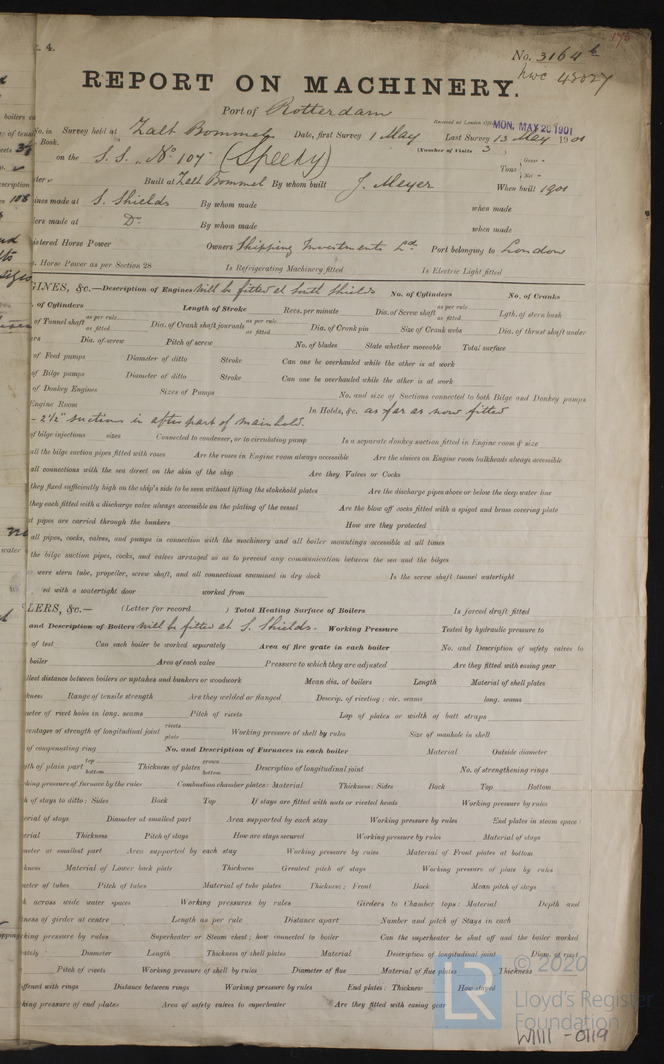 t. 4.
No. 3164 b
175
nwc 45027
REPORT ON MACHINERY.
Port of Rotterdam
Received at London Office MON. MAY 20 1901
No. in Survey held at Zalt Bommel Date, first Survey 1 May Last Survey 13 May 1901
Book. (Number of Visits 3 )
on the S.S. No 107 (Speedy) Tons { Gross Net
Built at Zalt Bommel By whom built J. Meyer When built 1901
ines made at S. Shields By whom made when made
ers made at Do By whom made when made
istered Horse Power Owners Shipping Investments Ld. Port belonging to London
Horse Power as per Section 28 Is Refrigerating Machinery fitted Is Electric Light fitted
GINES, &c.—Description of Engines Will be fitted at South Shields No. of Cylinders No. of Cranks
. of Cylinders Length of Stroke Revs. per minute Dia. of Screw shaft as per rule as fitted Lgth. of stern bush
of Tunnel shaft as per rule as fitted Dia. of Crank shaft journals as per rule as fitted Dia. of Crank pin Size of Crank webs Dia. of thrust shaft under
ars Dia. of screw Pitch of screw No. of blades State whether moveable Total surface
of Feed pumps Diameter of ditto Stroke Can one be overhauled while the other is at work
of Bilge pumps Diameter of ditto Stroke Can one be overhauled while the other is at work
of Donkey Engines Sizes of Pumps No. and size of Suctions connected to both Bilge and Donkey pumps
Engine Room In Holds, &c. as far as now fitted
– 2½" suctions in after part of main hold.
of bilge injections sizes Connected to condenser, or to circulating pump Is a separate donkey suction fitted in Engine room & size
all the bilge suction pipes fitted with roses Are the roses in Engine room always accessible Are the sluices on Engine room bulkheads always accessible
all connections with the sea direct on the skin of the ship Are they Valves or Cocks
they fixed sufficiently high on the ship's side to be seen without lifting the stokehold plates Are the discharge pipes above or below the deep water line
they each fitted with a discharge valve always accessible on the plating of the vessel Are the blow off cocks fitted with a spigot and brass covering plate
t pipes are carried through the bunkers How are they protected
all pipes, cocks, valves, and pumps in connection with the machinery and all boiler mountings accessible at all times
the bilge suction pipes, cocks, and valves arranged so as to prevent any communication between the sea and the bilges
were stern tube, propeller, screw shaft, and all connections examined in dry dock Is the screw shaft tunnel watertight
ed with a watertight door worked from
LERS, &c.— (Letter for record ) Total Heating Surface of Boilers Is forced draft fitted
and Description of Boilers Will be fitted at S. Shields. Working Pressure Tested by hydraulic pressure to
of test Can each boiler be worked separately Area of fire grate in each boiler No. and Description of safety valves to
boiler Area of each valve Pressure to which they are adjusted Are they fitted with easing gear
llest distance between boilers or uptakes and bunkers or woodwork Mean dia. of boilers Length Material of shell plates
kness Range of tensile strength Are they welded or flanged Descrip. of riveting: cir. seams long. seams
meter of rivet holes in long. seams Pitch of rivets Lap of plates or width of butt straps
centages of strength of longitudinal joint rivets plate Working pressure of shell by rules Size of manhole in shell
of compensating ring No. and Description of Furnaces in each boiler Material Outside diameter
gth of plain part top bottom Thickness of plates crown bottom Description of longitudinal joint No. of strengthening rings
king pressure of furnace by the rules Combustion chamber plates: Material Thickness: Sides Back Top Bottom
h of stays to ditto: Sides Back Top If stays are fitted with nuts or riveted heads Working pressure by rules
erial of stays Diameter at smallest part Area supported by each stay Working pressure by rules End plates in steam space:
erial Thickness Pitch of stays How are stays secured Working pressure by rules Material of stays
meter at smallest part Area supported by each stay Working pressure by rules Material of Front plates at bottom
kness Material of Lower back plate Thickness Greatest pitch of stays Working pressure of plate by rules
meter of tubes Pitch of tubes Material of tube plates Thickness: Front Back Mean pitch of stays
h across wide water spaces Working pressures by rules Girders to Chamber tops: Material Depth and
ness of girder at centre Length as per rule Distance apart Number and pitch of Stays in each
king pressure by rules Superheater or Steam chest; how connected to boiler Can the superheater be shut off and the boiler worked
ately Diameter Length Thickness of shell plates Material Description of longitudinal joint Diam. of rivet
Pitch of rivets Working pressure of shell by rules Diameter of flue Material of flue plates Thickness
ffened with rings Distance between rings Working pressure by rules End plates: Thickness How stayed
king pressure of end plates Area of safety valves to superheater Are they fitted with easing gear
LR © 2020
Lloyd's Register
Foundation
W1111-0119